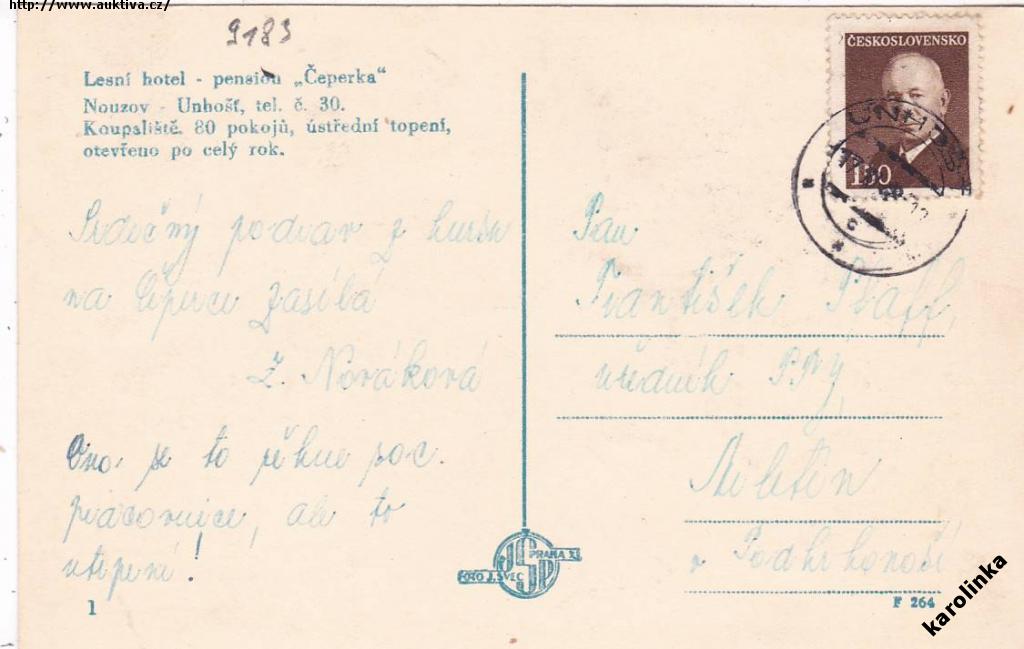 http://www.auktiva.cz/
9183
Lesní hotel - pension „Čeperka"
Nouzov - Unhošť, tel. č. 30.
Koupaliště. 80 pokojů, ústřední topení,
otevřeno po celý rok.
ČESKOSLOVENSKO
1.50
Srdečný pozdrav z kursu
na Čeperce zasílá
Z. Nováková
Ono se to řekne poc.
pracovnice, ale to
utrpení!
Pan
František Pfaff,
úředník
Miletín
v Podkrkonoší
FOTO J. ŠVEC
PRAHA XI.
1
F 264
karolinka